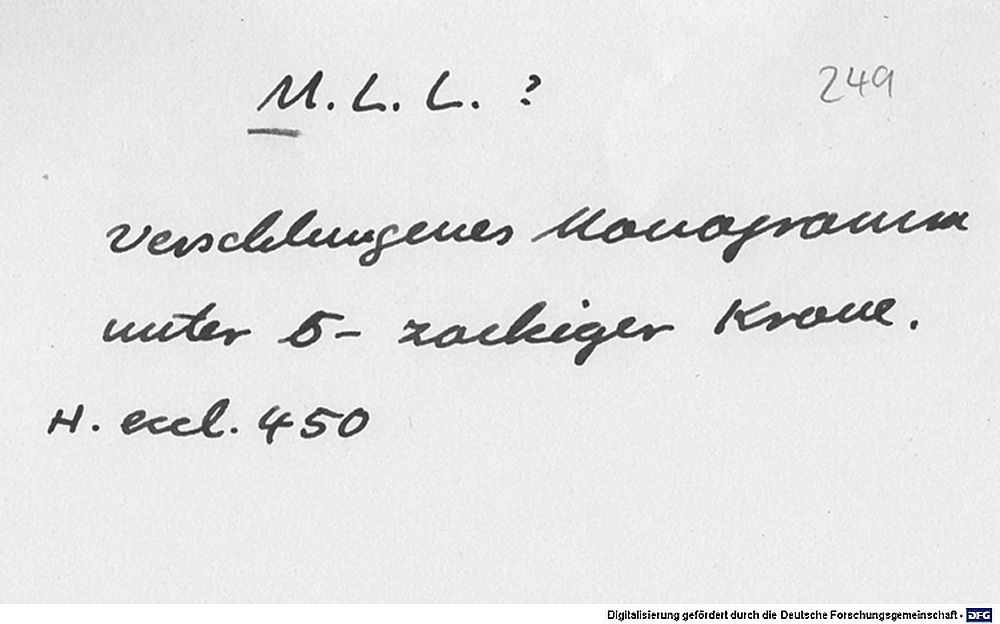 M. L. L. ?
249
Verschlungenes Monogramm
unter 5-zackiger Krone.
H. eccl. 450
Digitalisierung gefördert durch die Deutsche Forschungsgemeinschaft - DFG